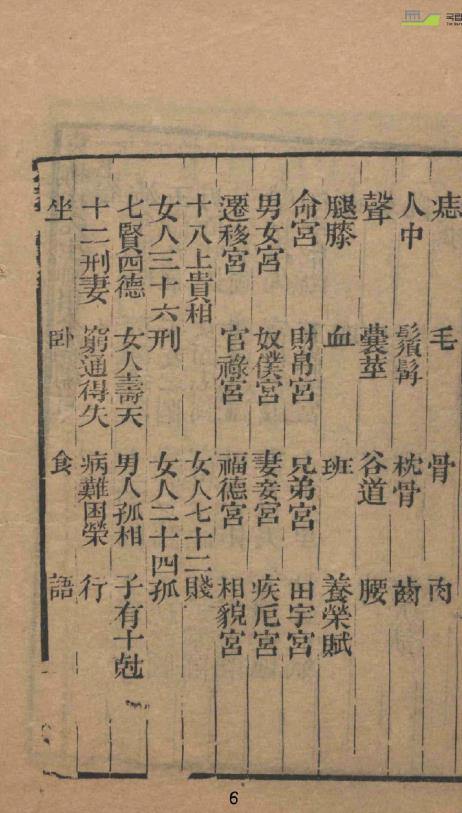 痣 毛 骨 肉
人中 鬚髯 枕骨 齒
聲 囊莖 谷道 腰
腿膝 血 班 養榮賦
命宮 財帛宮 兄弟宮 田宇宮
男女宮 奴僕宮 妻妾宮 疾厄宮
遷移宮 官祿宮 福德宮 相貌宮
十八上貴相 女人七十二賤
女人三十六刑 女人二十四孤
七賢四德 女人壽夭 男人孤相 子有十尅
十二刑妻 窮通得失 病難困榮 行
坐 卧 食 語
6